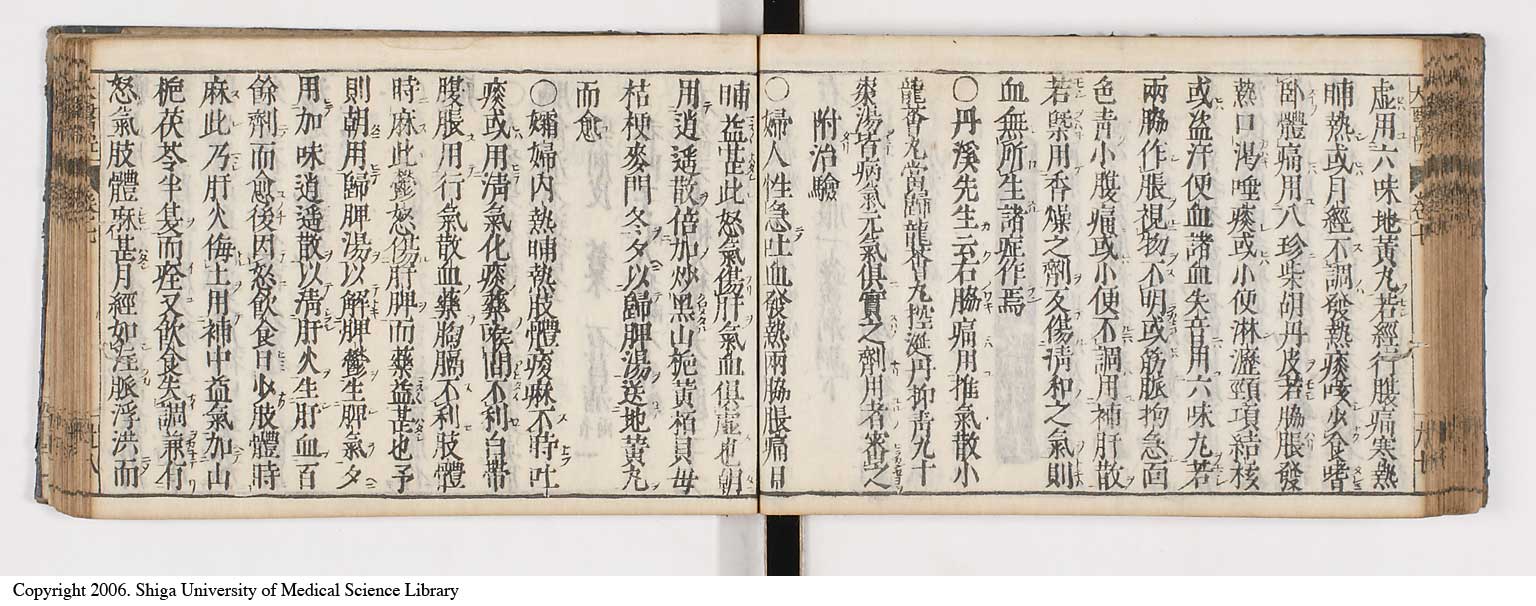 虚用六味地黄丸若經行腹痛寒熱
晡熱或月經不調發熱痰咳少食嗜
臥體痛用八珍柴胡丹皮若脇脹發
熱口渇唾痰或小便淋瀝頸項結核
或盗汗便血諸血失音用六味丸若
兩脇作脹視物不明或筋脈拘急面
色青小腹痛或小便不調用補肝散
若槩用香燥之劑反傷清和之氣則
血無所生諸症作焉
〇丹溪先生云右脇痛用推氣散小
龍薈丸當歸龍薈丸控涎丹抑青丸十
棗湯皆病氣元氣俱實之劑用者審之
附治驗
〇婦人性急吐血發熱兩脇脹痛日
晡益甚此怒氣傷肝氣血俱虚也朝
用逍遥散倍加炒黒山梔黄栢貝母
桔梗麥門冬夕以歸脾湯送地黄丸
而愈
〇孀婦内熱晡熱肢體痠麻不時吐
痰或用清氣化痰藥喉間不利白帶
腹脹用行氣散血藥胸膈不利肢體
時麻此鬱怒傷肝脾而藥益甚也予
則朝用歸脾湯以解脾鬱生脾氣夕
用加味逍遥散以清肝火生肝血百
餘劑而愈後因怒飲食日少肢體時
麻此乃肝火侮土用補中益氣加山
梔茯苓半夏而痊又飲食失調兼有
怒氣肢體麻甚月經如淫脈浮洪而
Copyright 2006. Shiga University of Medical Science Library